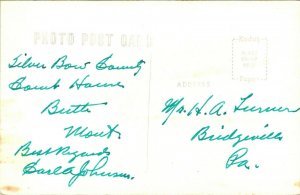 PHOTO POST CARD
Silver Bow County
Court House
Butte
Mont.
Best Regards
Earl A Johnson.
ADDRESS
Mr. H. A. Turner
Bridgeville
Pa.